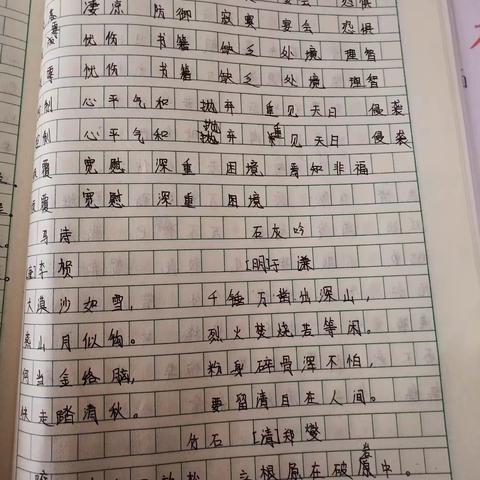 凄凉 防御 寂寞 宴会 恐惧
忧伤 书籍 缺乏 处境 理智
忧伤 书籍 缺乏 处境 理智
心平气和 抛弃 重见天日 侵袭
心平气和 抛弃 重见天日 侵袭
宽慰 深重 困境 焉知非福
宽慰 深重 困境
马诗 石灰吟
[唐]李贺 [明]于谦
大漠沙如雪, 千锤万凿出深山,
燕山月似钩。 烈火焚烧若等闲。
何当金络脑, 粉身碎骨浑不怕,
快走踏清秋。 要留清白在人间。
竹石 [清]郑燮
立根原在破岩中。